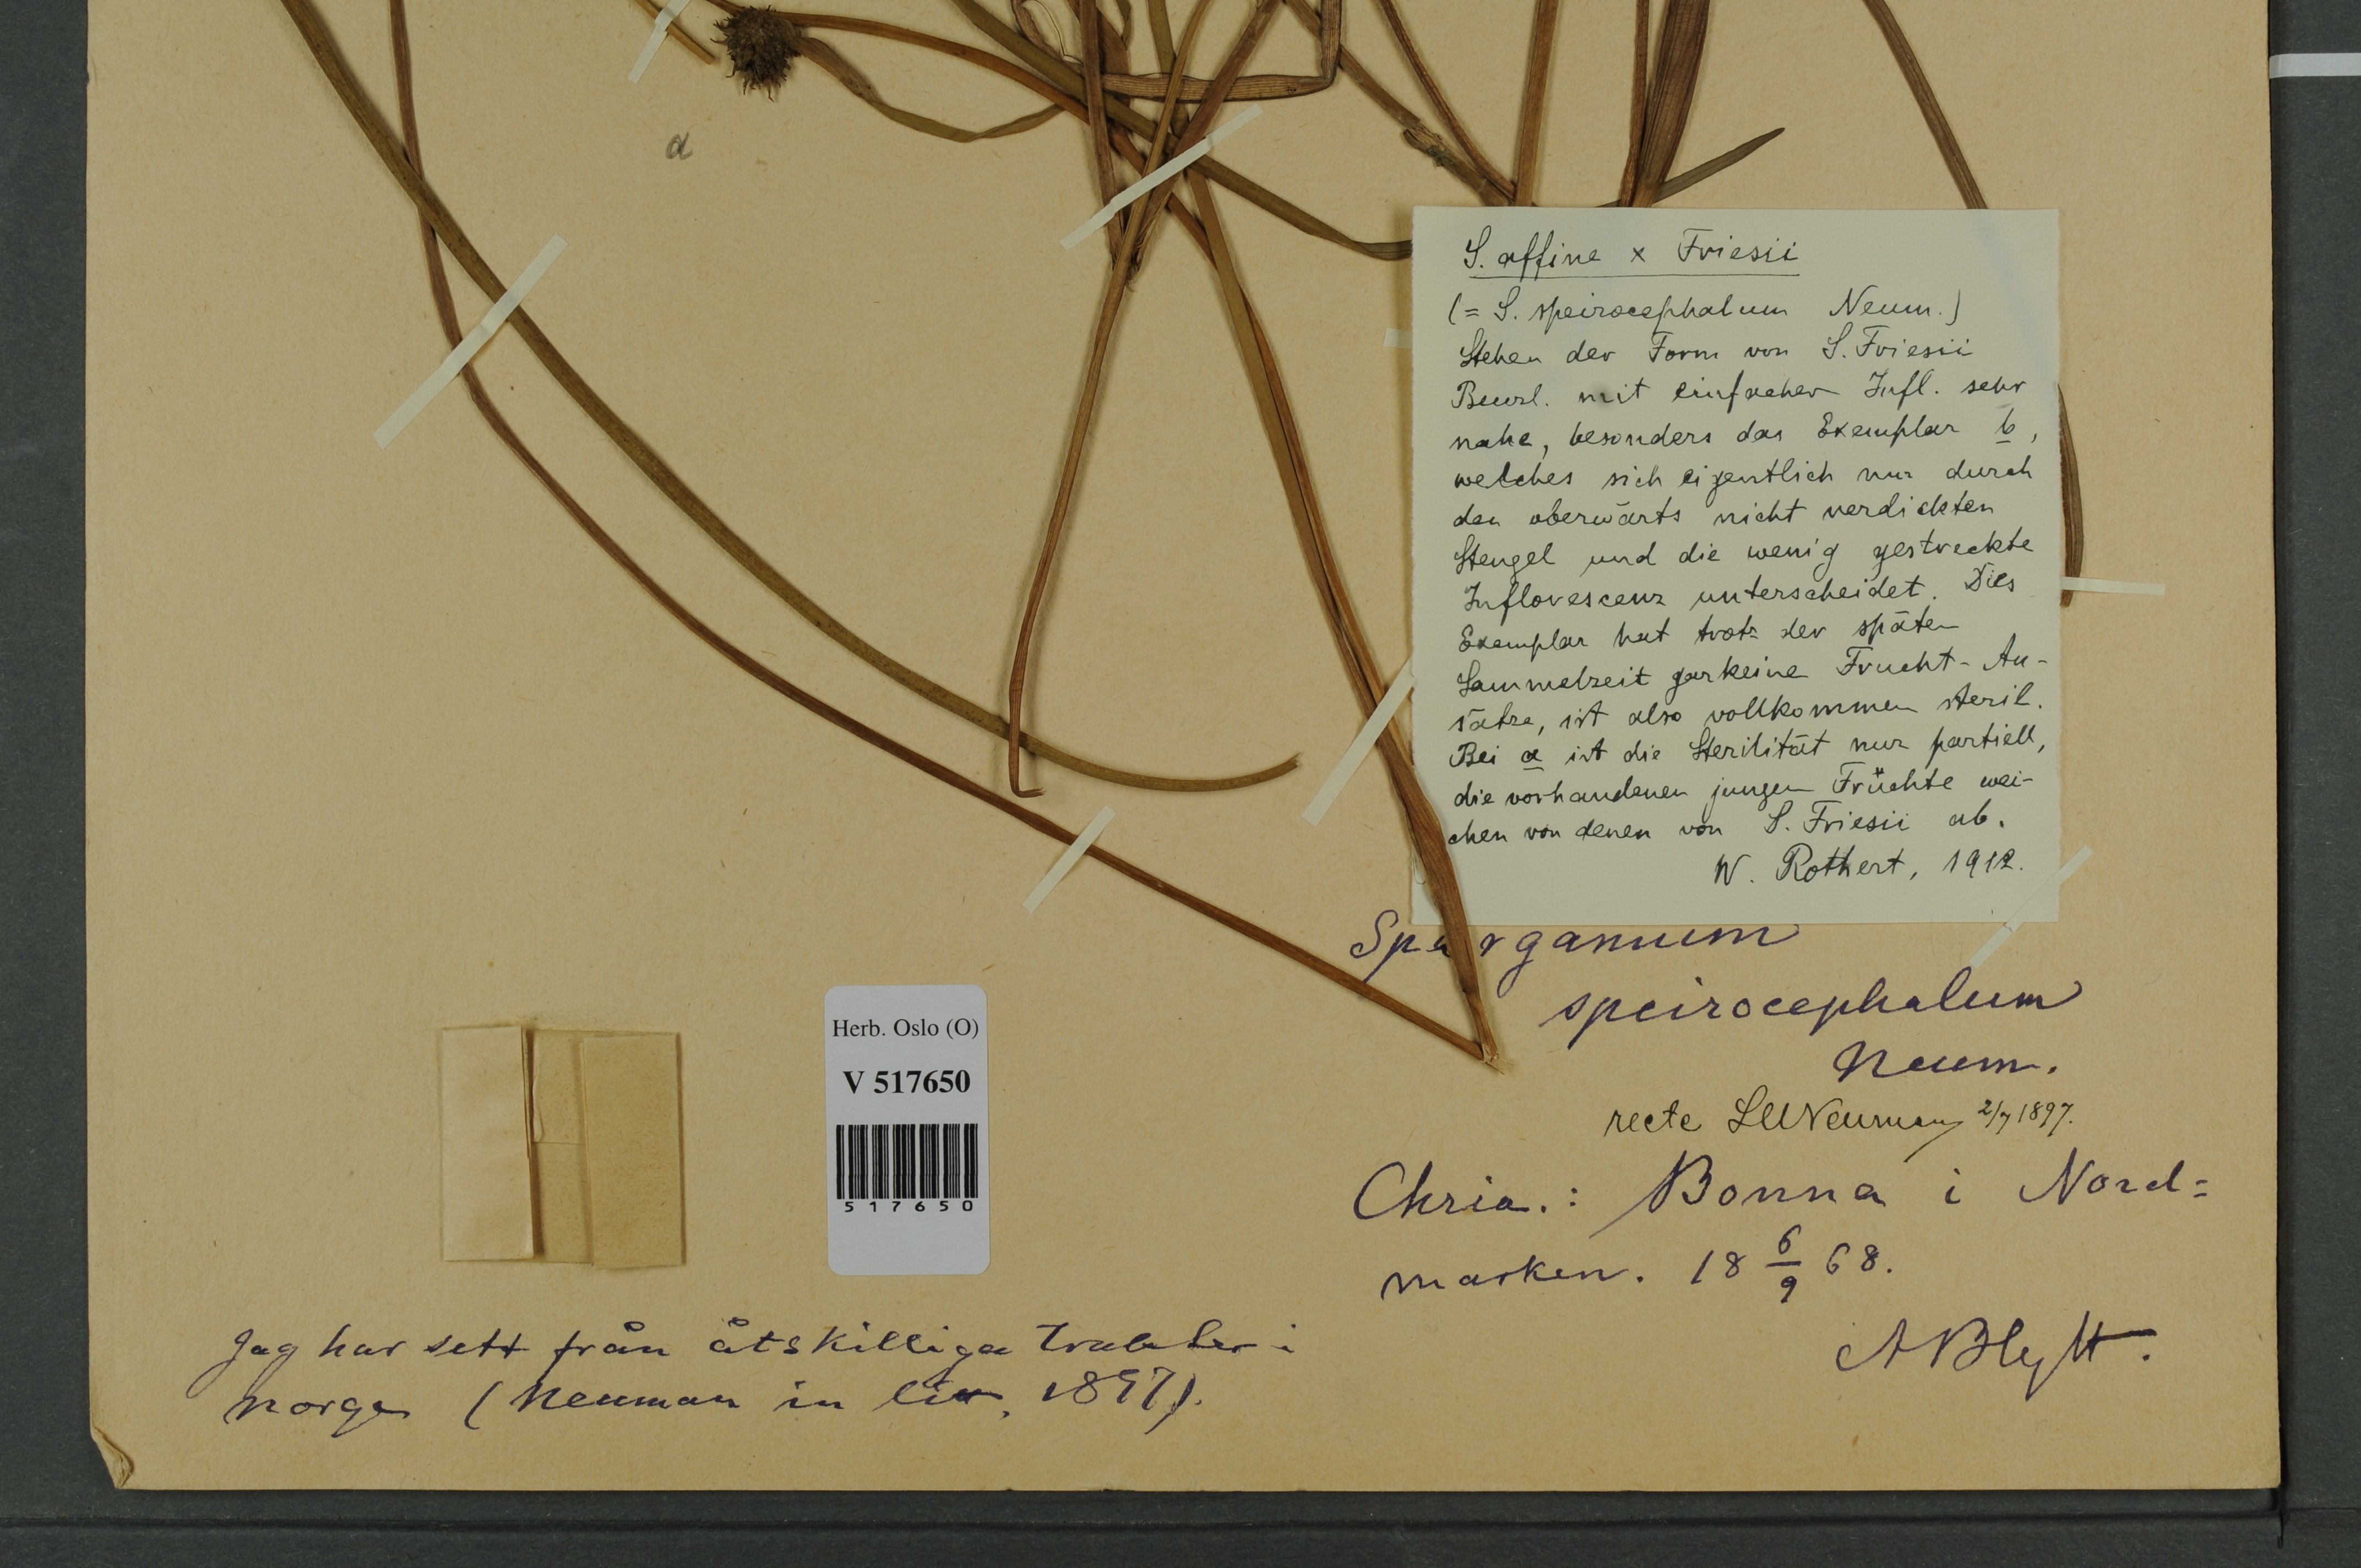 a
S. affine x Friesii
(= S. speirocephalum Neum.)
Stehen der Form von S. Friesii
Beurl. mit einfacher Infl. sehr
nahe, besonders das Exemplar b,
welches sich eigentlich nur durch
den oberwärts nicht verdickten
Stengel und die wenig gestreckte
Inflorescenz unterscheidet. Dies
Exemplar hat trotz der späten
Sammelzeit garkeine Frucht-An-
sätze, ist also vollkommen steril.
Bei a ist die Sterilität nur partiell,
die vorhandenen jungen Früchte wei-
chen von denen von S. Friesii ab.
W. Rothert, 1912.
Sparganium
speirocephalum
Neum.
recte LMNeuman 2/7 1897.
Chria.: Bonna i Nord=
marken. 18 6/9 68.
A Blytt.
Herb. Oslo (O)
V 517650
517650
Jag har sett från åtskilliga trakter i
Norge (Neuman in litt. 1897).